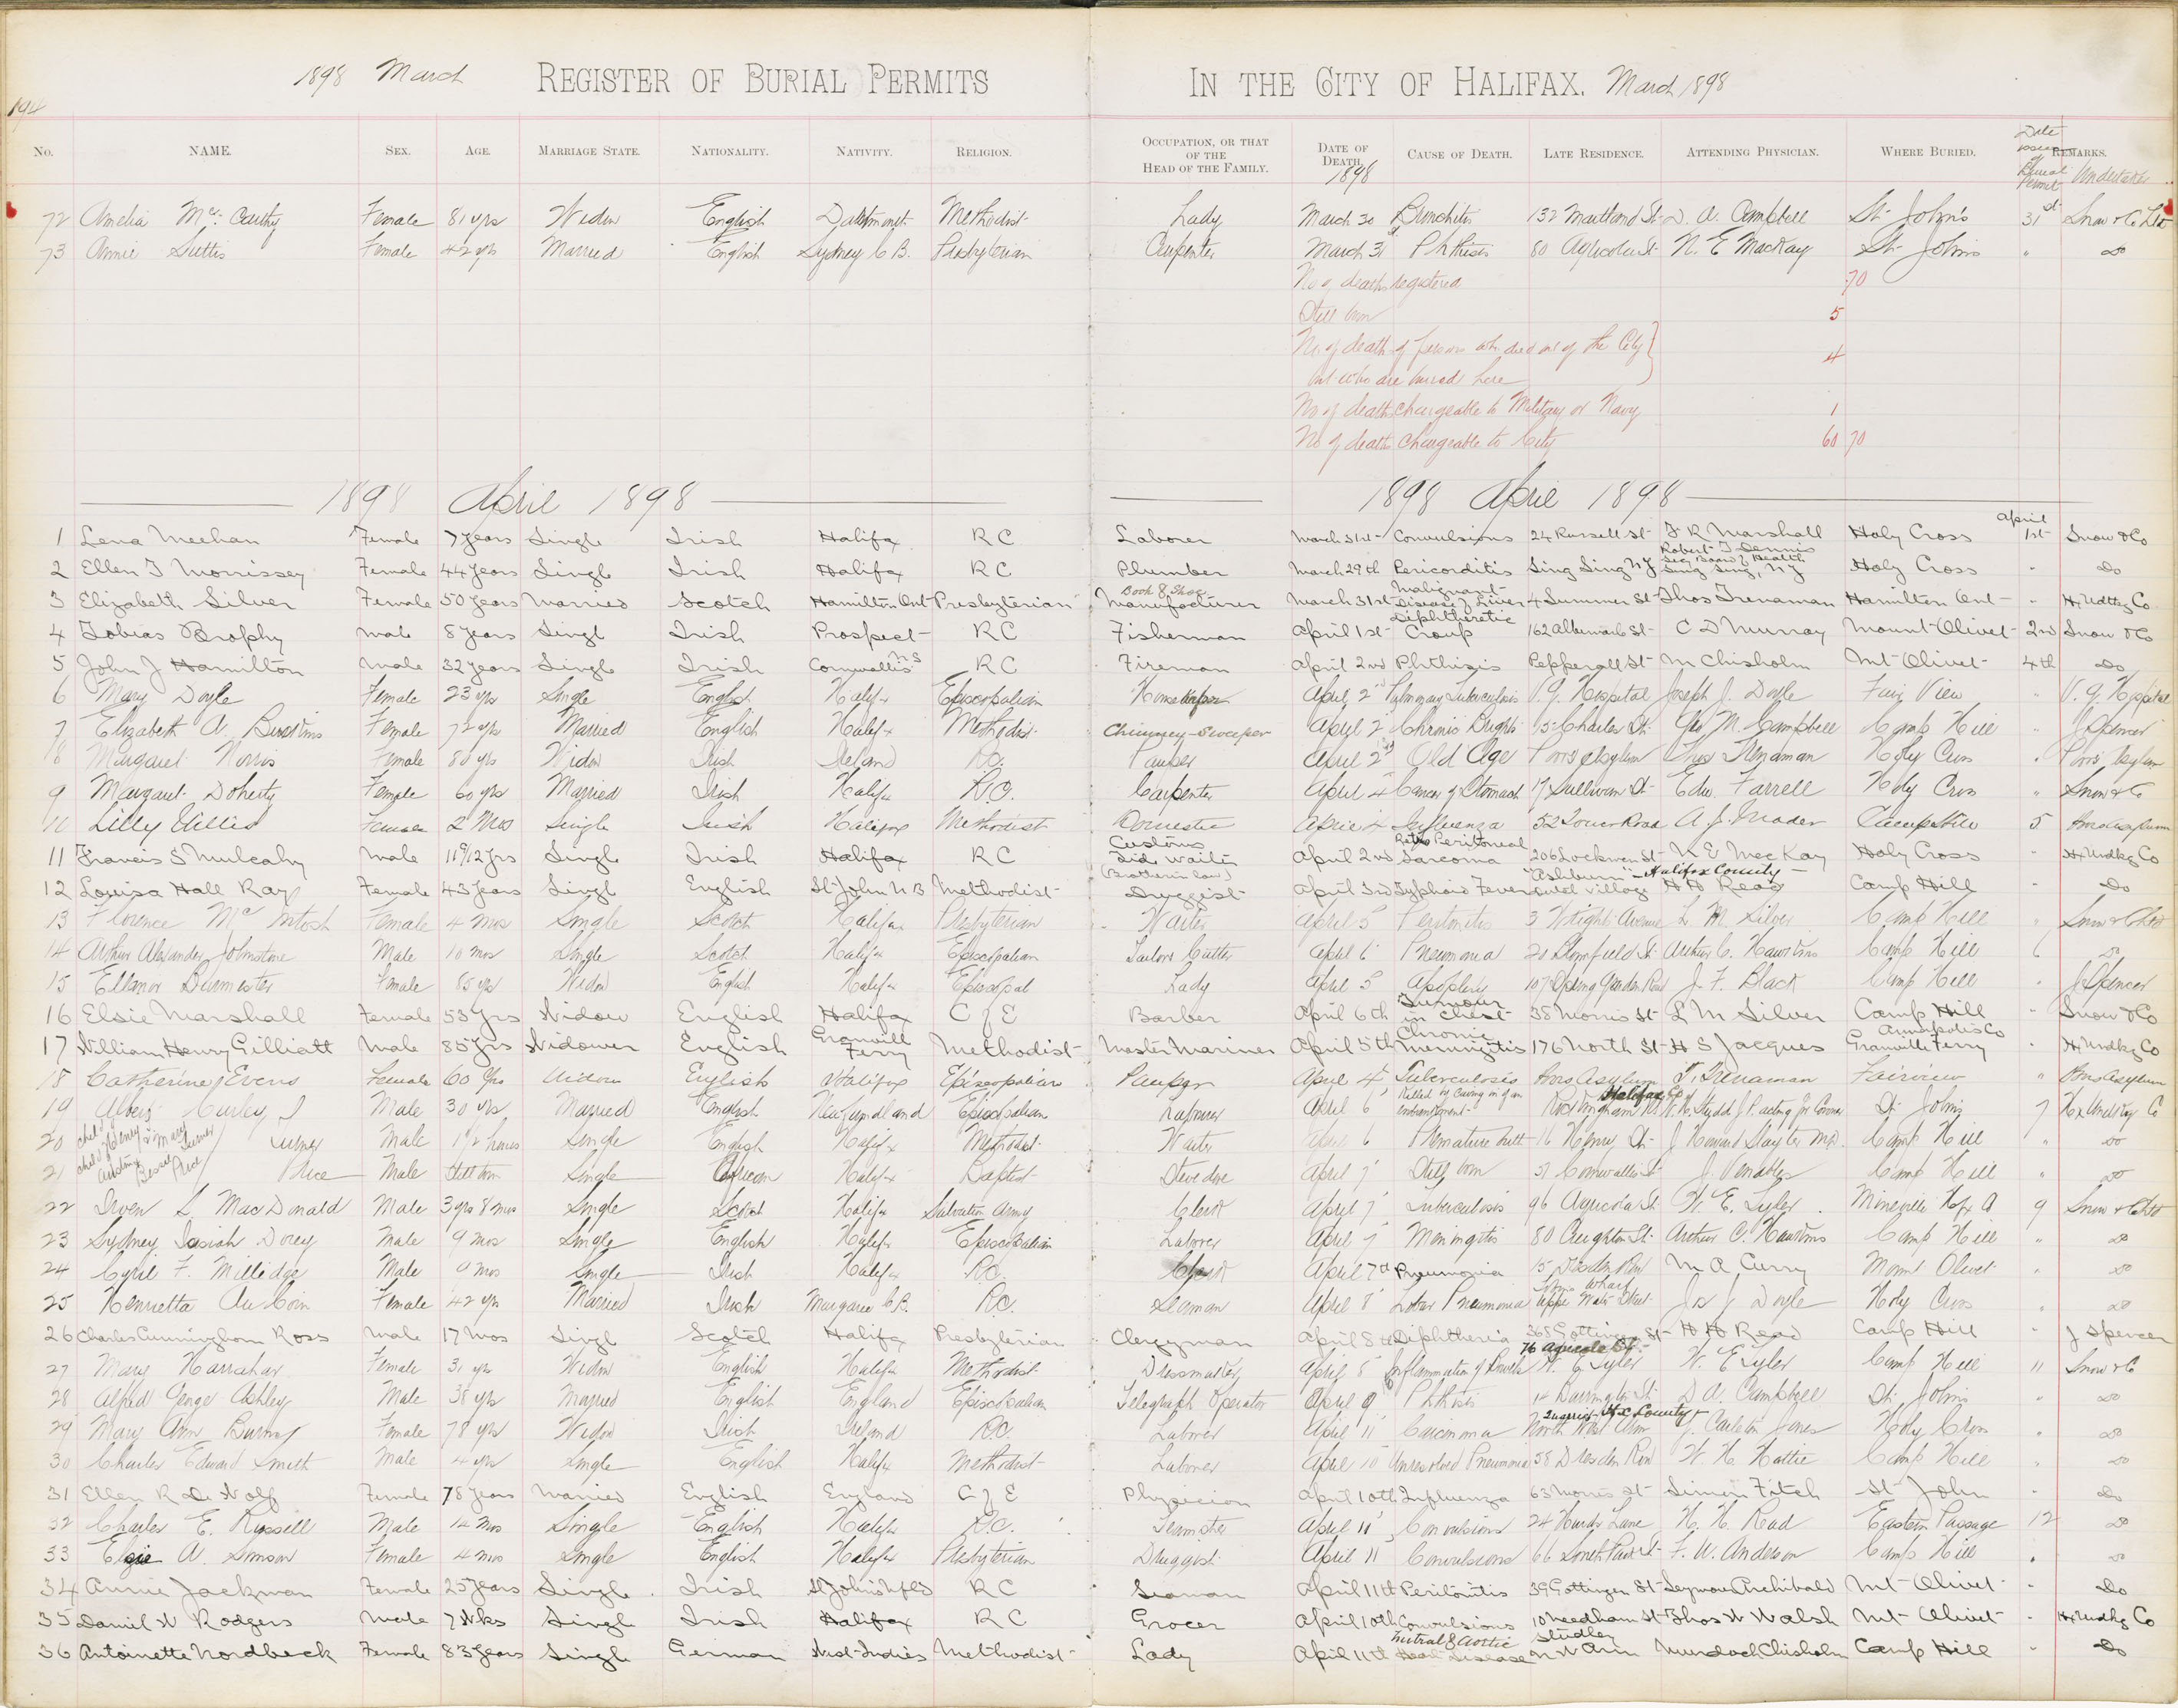 194
1898 March REGISTER OF BURIAL PERMITS IN THE CITY OF HALIFAX. March 1898
No. NAME. SEX. AGE. MARRIAGE STATE. NATIONALITY. NATIVITY. RELIGION. OCCUPATION, OR THAT OF THE HEAD OF THE FAMILY. DATE OF DEATH. 1898 CAUSE OF DEATH. LATE RESIDENCE. ATTENDING PHYSICIAN. WHERE BURIED. Date issue of Burial Permit REMARKS. Undertaker
72 Amelia Mc Carthy Female 81 yrs Widow English Dartmouth Methodist Lady March 30 Bronchitis 132 Maitland St D. A. Campbell St John's 31st Snow & Co Ltd
73 Annie Suttis Female 42 yrs Married English Sydney C B. Presbyterian Carpenter March 31 Phthisis 80 Agricola St N. E MacKay St John's " do
No of deaths registered 70
Still born 5
No of deaths of persons who died out of the City
but who are buried here 4
No of deaths chargeable to Military or Navy 1
No of deaths chargeable to City 60 70
1898 April 1898 1898 April 1898
1 Lena Meehan Female 7 years Single Irish Halifax R C Laborer March 31st Convulsions 24 Russell St F R Marshall Holy Cross April 1st Snow & Co
2 Ellen J Morrissey Female 44 years Single Irish Halifax R C Plumber March 29th Pericorditis Sing Sing N Y Robert T Dennis Sec Board of Health Sing Sing, N Y Holy Cross " Do
3 Elizabeth Silver Female 50 years Married Scotch Hamilton Ont Presbyterian Book & Shoe Manufacturer March 31st Malignant Disease of Liver 4 Summer St Thos Trenaman Hamilton Ont " Hx Udtkg Co
4 Tobias Brophy Male 8 years Single Irish Prospect R C Fisherman April 1st Diphtheretic Croup 162 Albemarle St C D Murray Mount Olivet 2nd Snow & Co
5 John J Hamilton Male 32 years Single Irish Cornwallis N S R C Fireman April 2nd Phthisis Pepperall St M Chisholm Mt Olivet 4th Do
6 Mary Doyle Female 23 yrs Single English Halifx Episcopalian Housekeeper April 2nd Pulmonary Tuberculosis V. G. Hospital Joseph J. Doyle Fair View " V. G. Hospital
7 Elizabeth A. Female 72 yrs Married English Halifx Methodist Chimney-Sweeper April 2 Chronic Brights 15 Charles St Geo M. Campbell Camp Hill " J Spencer
8 Margaret Norris Female 80 yrs Widow Irish Ireland R.C. Pauper April 2nd Old Age Poors Asylum Thos Trenaman Holy Cross " Poors Asylum
9 Margaret Doherty Female 60 yrs Married Irish Halifx R.C. Carpenter April 4 Cancer of Stomach 17 Sullivan St Edw. Farrell Holy Cross " Snow & Co
10 Lilly Willis Female 2 Mos Single Irish Halifax Methodist Domestic April 4 Influenza 52 Tower Road A. J. Mader Camp Hill 5 Poors Asylum
11 Francis S Mulcahy Male 11 9/12 yrs Single Irish Halifax R C Customs Tide Waiter April 2nd Retro Peritoneal Sarcoma 206 Lockman St N E MacKay Holy Cross " Hx Undtkg Co
12 Louisa Hall Ray Female 43 years Single English St John N B Methodist (Brother in law) Druggist April 3rd Typhoid Fever "Ashburn" Halifax County Dutch Village H H Read Camp Hill " Do
13 Florence Mc Intosh Female 4 mos Single Scotch Halifax Presbyterian Waiter April 5 Peritonitis 3 Wright Avenue L. M. Silver Camp Hill " Snow & Co Ltd
14 Arthur Alexander Johnstone Male 10 mos Single Scotch Halifx Episcopalian Tailors Cutter April 6 Pneumonia 20 Blomfield St Arthur C. Hawkins Camp Hill 6 do
15 Ellanor Burmester Female 85 yrs Widow English Halifx Episcopal Lady April 5 Apoplexy 107 Spring Garden Road J. F. Black Camp Hill " J Spencer
16 Elsie Marshall Female 53 yrs Widow English Halifax C of E Barber April 6th Tumour in Chest 38 Morris St L M Silver Camp Hill " Snow & Co
17 William Henry Gilliatt Male 85 yrs Widower English Granvill Ferry Methodist Master Mariner April 5th Chronic Meningitis 176 North St H S Jacques Annapolis Co Granville Ferry " Hx Undkg Co
18 Catherine Evens Female 60 yrs Widow English Halifax Episcopalian Pauper April 4 Tuberculosis Poors Asylum T. Trenaman Fairview " Poors Asylum
19 Albert Curley Male 30 yrs Married English Newfoundland Episcopalian Laborer April 6 Killed by Caving in of an embankment Rockingham Halifax Co W. H. Studd J P. acting for Coroner St Johns 7 Hx Undtkg Co
20 child of Henry & Mary Turner Turner Male 1 1/2 hours Single English Halifx Methodist Waiter April 6 Premature birth 16 Henry St J Howard Slayter M.D. Camp Hill " do
21 child of Austin & Bessie Price Price Male Still born Single African Halifx Baptist Stevedore April 7 Still born 51 Cornwallis St J. Venables Camp Hill " do
22 Irven L. MacDonald Male 3 yrs 8 mos Single Scotch Halifx Salvation Army Clerk April 7 Tuberculosis 96 Agricola St W. E. Tyler Mineville Hfx Co 9 Snow & Co Ltd
23 Sydney Isaiah Dorey Male 9 mos Single English Halifx Episcopalian Laborer April 7 Meningitis 80 Creighton St Arthur C. Hawkins Camp Hill " do
24 Cyril F. Millidge Male 9 mos Single Irish Halifx R.C. Clerk April 7th Pneumonia 15 Dresden Row M A Curry Mount Olivet " do
25 Henrietta Au Coin Female 42 yrs Married Irish Margaree C.B. R.C. Seaman April 8 Lobar Pneumonia Wharf Upper Water Street Jos J Doyle Holy Cross " do
26 Charles Cunningham Ross Male 17 mos Single Scotch Halifax Presbyterian Clergyman April 8th Diphtheria 368 Gottingen St H H Read Camp Hill " J Spencer
27 Mary Harrahar Female 31 yrs Widow English Halifx Methodist Dressmaker April 8 Inflammation of Bowels 76 Agricola St W. E Tyler W. E Tyler Camp Hill 11 Snow & Co
28 Alfred George Ashley Male 38 yrs Married English England Episcopalian Telegraph Operator April 9 Phthisis 14 Barrington St D A. Campbell St Johns " do
29 Mary Ann Burns Female 78 yrs Widow Irish Ireland R.C. Laborer April 11 Carcinoma Hx County North West Arm J. Carleton Jones Holy Cross " do
30 Charles Edward Smith Male 4 yrs Single English Halifx Methodist Laborer April 10 Unresolved Pneumonia 58 Dresden Row W. H. Hattie Camp Hill " do
31 Ellen R De Wolf Female 78 years Married English England C of E Physician April 10th Influenza 63 Morris St Simon Fitch St John " Do
32 Charles E. Russell Male 14 mos Single English Halifx R.C. Teamster April 11 Convulsions 24 Hurds Lane H. H. Read Eastern Passage 12 do
33 Elsie A. Simson Female 4 mos Single English Halifx Presbyterian Druggist April 11 Convulsions 66 South Park St F. W. Anderson Camp Hill " do
34 Annie Jackman Female 25 years Single Irish St Johns Nfld R C Seaman April 11th Peritonitis 39 Gottingen St Seymour Archibald Mt Olivet " Do
35 Daniel W Rodgers Male 7 Wks Single Irish Halifax R C Grocer April 10th Convulsions 10 Needham St Thos W Walsh Mt Olivet " Hx Undkg Co
36 Antoinette Nordbeck Female 83 years Single German West Indies Methodist Lady April 11th Mitral & Aortic Heart Disease Studley N W Arm Murdoch Chisholm Camp Hill " Do